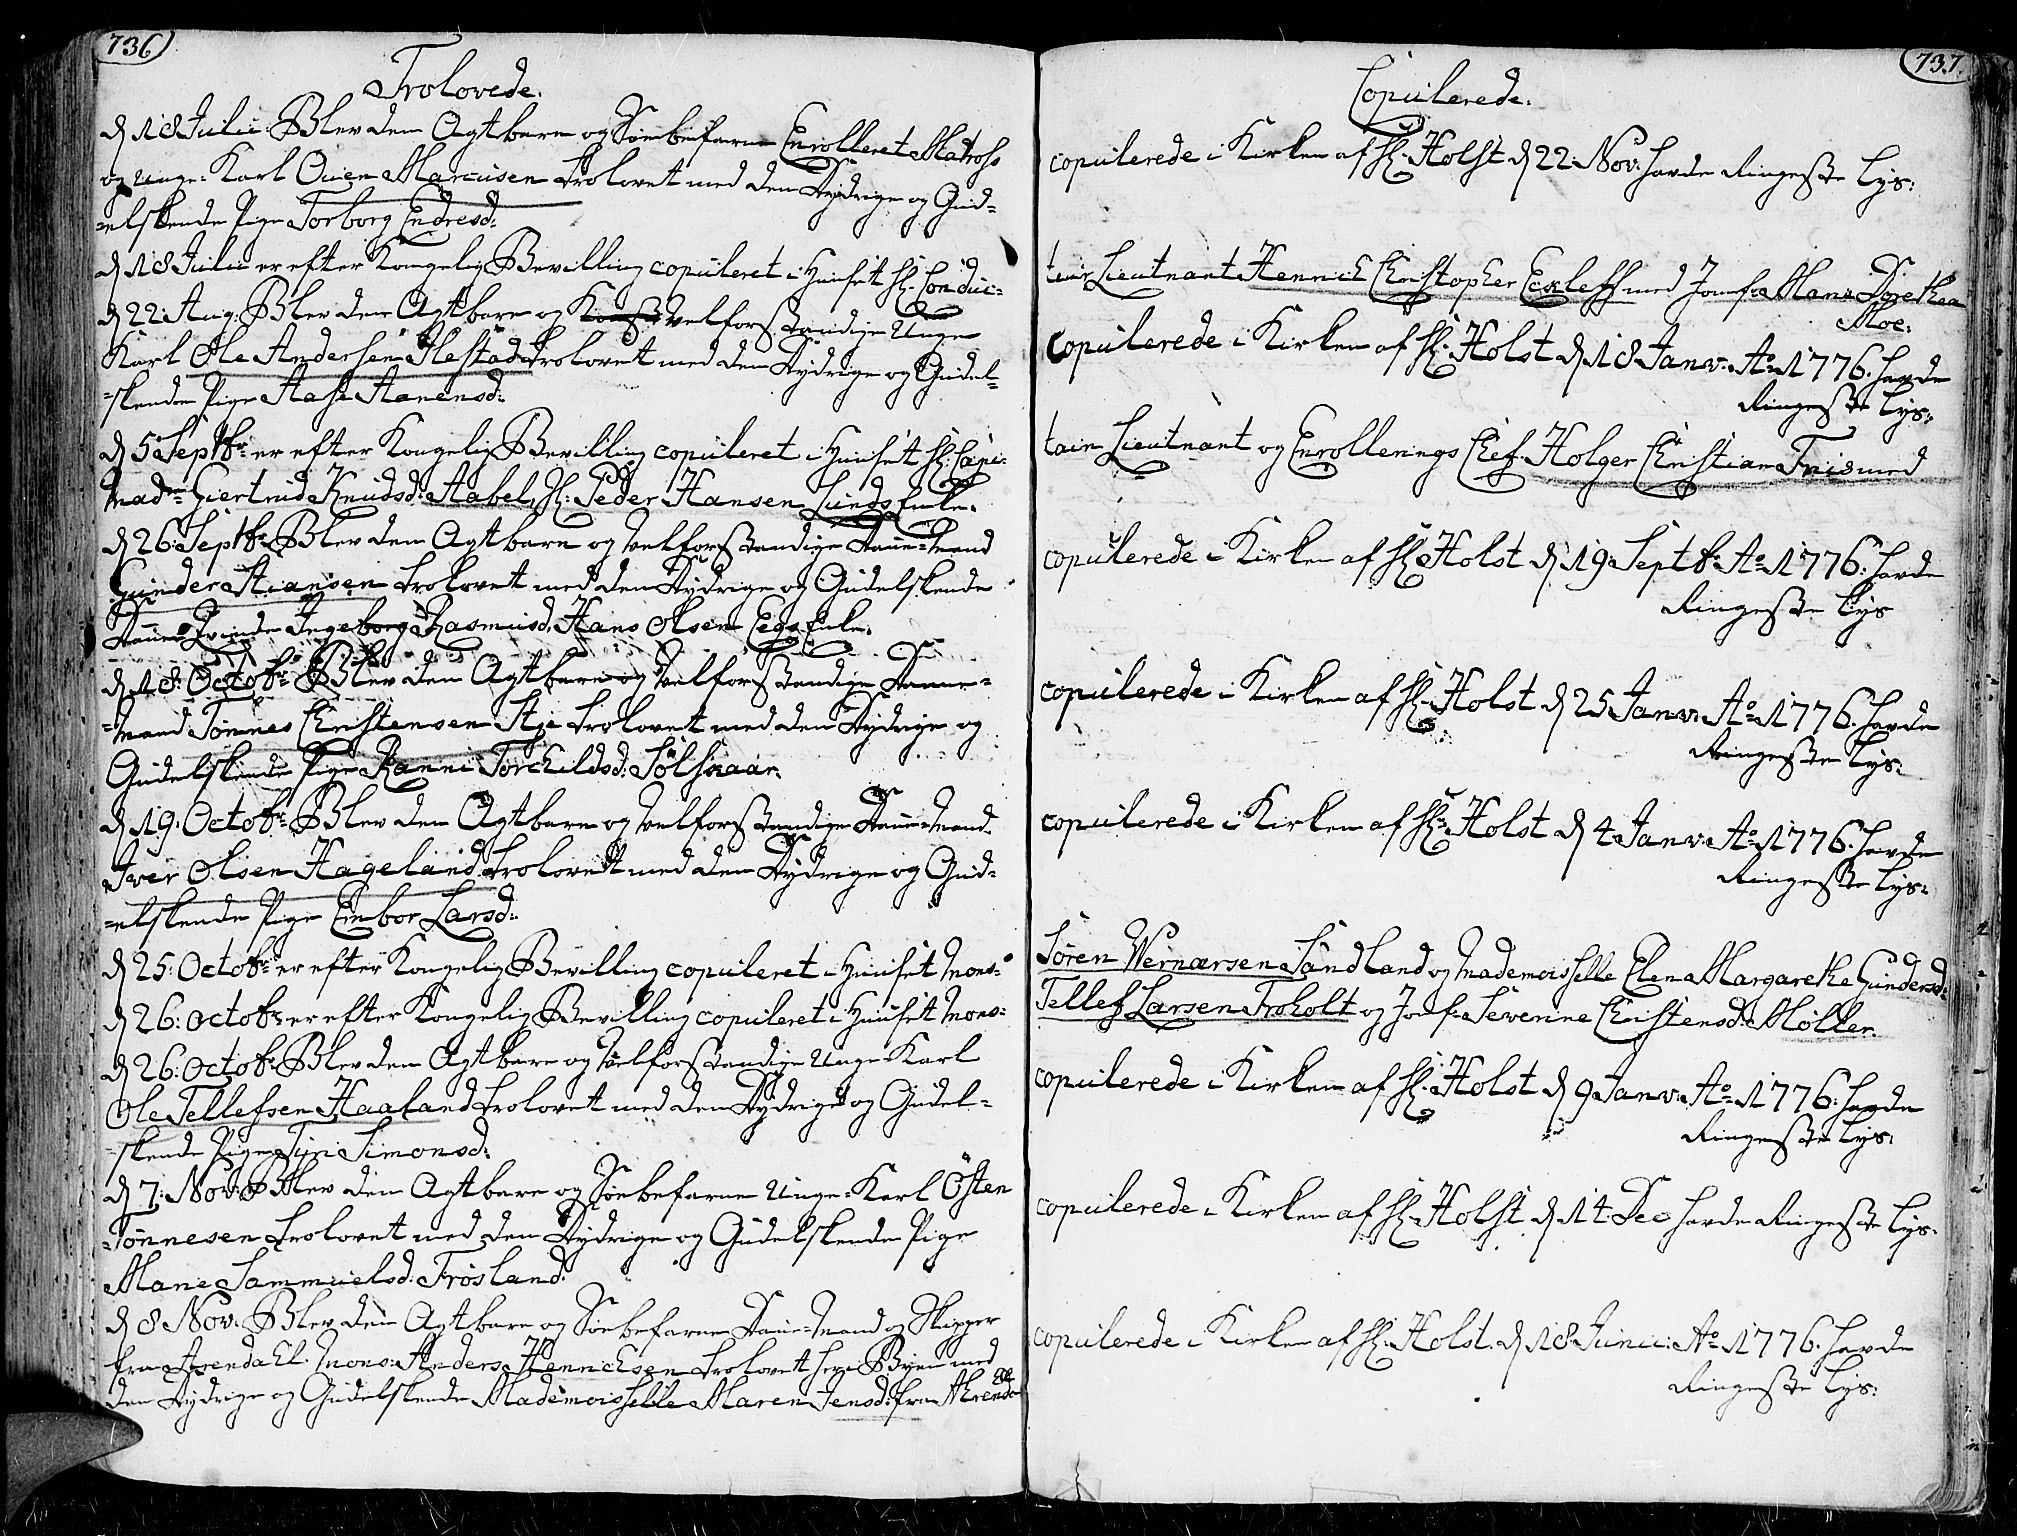 736
Trolovede.
d 18 Julii Blev den Agtbare og Søebefarne Enrolleret Matross
og unge Karl Ouen Marcusen trolovet med den Dydrige og Gud-
=elskende Pige Torborg Endresd:
d 18 Julii er efter Kongelig Bevilling copuleret i Huuset Hr. Conduc-
d 22 Aug: Blev den Agtbare og velforstandige Unge
Karl Ole Andersen Ilestad trolovet med den Dydrige og Gudel-
=skende Pige Aase Aanensd:
d 5 Septbr: er efter Kongelig Bevilling copuleret i Huuset Hr: Capi-
Madme Giertrud Knudsd: Aabel, Sl: Peder Hansen Lunds Enke.
d 26: Septbr: Blev den Agtbare og velforstandige Danne-Mand
Gunder Stiansen trolovet med den Dydrige og Gudelskende
Danne Qvinde Ingeborg Rasmusd: Hans Olsen Eegs Enke.
d 18: Octobr: Blev den Agtbare og velforstandige Danne-
=Mand Tønnes Christensen Aje trolovet med den Dydrige og
Gudelskende Pige Ranni Torchildsd: Sølsnaar.
d 19: Octobr: Blev den Agtbare og velforstandige Danne-Mand
Iver Olsen Hageland trolovet med den Dydrige og Gud-
=elskende Pige Embor Larsd:
d 25: Octobr: er efter Kongelig Bevilling copuleret i Huuset Mons:
d 26: Octobr: er efter Kongelig Bevilling copuleret i Huuset Mons:
d 26: Octobr: Blev den Agtbare og velforstandige unge Karl
Ole Tellefsen Haaland trolovet med den Dydrige og Gudel-
=skende Pige Siri Simonsd:
d 7: Nov: Blev den Agtbare og Søebefarne Unge-Karl Östen
Tønnesen trolovet med den Dydrige og Gudelskende Pige
Mane Sammuelsd: Frøsland.
d 8 Nov: Blev den Agtbare og Søebefarne Danne-Mand og Skipper
fra Arendahl. Mons: Anders Hennichsen trolovet her i Byen med
den Dydrige og Gudelskende Mademoisselle Maren Jensd: fra Ahrendal
737.
Copulerede.
copulerede i Kirken af Hr: Holst d 22 Nov: havde Ringeste Lys:
teur Lieutnant Hennich Christopher Eckleff med Jomfr: Mana Dorethea
Moe.
copulerede i Kirken af Hr: Holst d 18 Janv: Ao 1776. havde
Ringeste Lys:
tain Lieutnant og Enrollerings Chef. Holger Christian Friis med
copulerede i Kirken af Hr: Holst d 19 Septbr: Ao 1776. havde
Ringeste Lys
copulerede i Kirken af Hr: Holst d 25 Janv: Ao 1776. havde
Ringeste Lys:
copulerede i Kirken af Hr: Holst d 4 Janv: Ao 1776. havde
Ringeste Lys:
Søren Wernersen Sandland og Mademoisselle Elen Margarethe Gundersd:
Tellef Larsen Froholt og Jomf: Severine Christensd: Møller.
copulerede i Kirken af Hr: Holst d 9 Janv: Ao 1776. havde
Ringeste Lys:
copulerede i Kirken af Hr: Holst d 14 Dec havde Ringeste Lys:
copulerede i Kirken af Hr: Holst. d 18 Junii: Ao 1776. havde
Ringeste Lys: